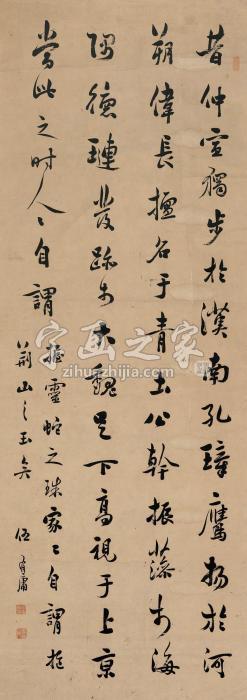 昔仲宣獨步於漢南孔璋鷹揚於河
朔偉長擅名于青土公幹振藻於海
隅德璉發跡於大魏足下高視于上京
當此之時人〻自謂握靈蛇之珠家〻自謂抱
荊山之玉矣 伍有庸
字画之家
www.zihuazhijia.com